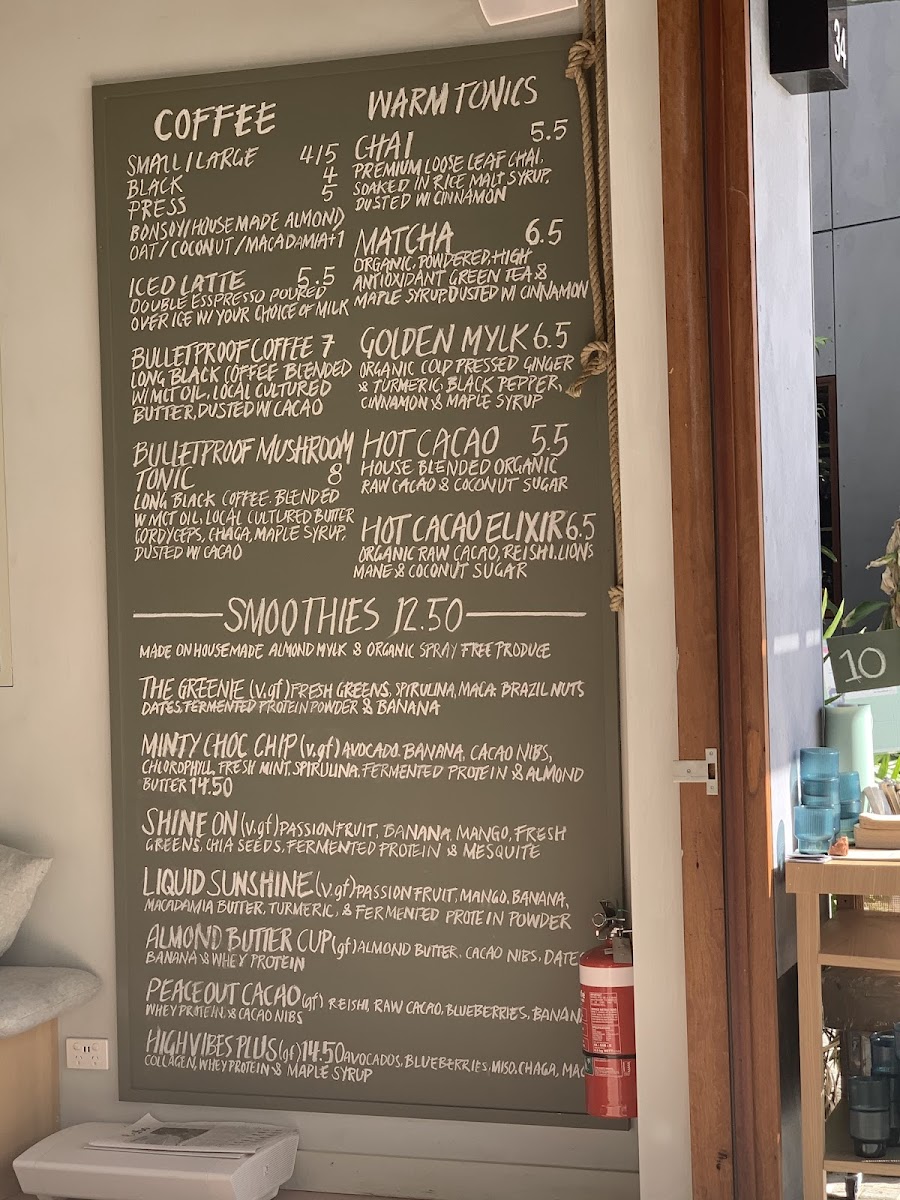 COFFEE
SMALL / LARGE 4/5
BLACK 4
PRESS 5
BONSOY/HOUSEMADE ALMOND
OAT/COCONUT/MACADAMIA+1
ICED LATTE 5.5
DOUBLE ESSPRESSO POURED
OVER ICE W/ YOUR CHOICE OF MILK
BULLETPROOF COFFEE 7
LONG BLACK COFFEE BLENDED
W/ MCT OIL, LOCAL CULTURED
BUTTER, DUSTED W/ CACAO
BULLETPROOF MUSHROOM
TONIC 8
LONG BLACK COFFEE. BLENDED
W MCT OIL, LOCAL CULTURED BUTTER
CORDYCEPS, CHAGA, MAPLE SYRUP,
DUSTED W/ CACAO
WARM TONICS
CHAI 5.5
PREMIUM LOOSE LEAF CHAI,
SOAKED IN RICE MALT SYRUP,
DUSTED W/ CINNAMON
MATCHA 6.5
ORGANIC, POWDERED, HIGH
ANTIOXIDANT GREEN TEA &
MAPLE SYRUP, DUSTED W/ CINNAMON
GOLDEN MYLK 6.5
ORGANIC COLD PRESSED GINGER
& TURMERIC, BLACK PEPPER,
CINNAMON & MAPLE SYRUP
HOT CACAO 5.5
HOUSE BLENDED ORGANIC
RAW CACAO & COCONUT SUGAR
HOT CACAO ELIXIR 6.5
ORGANIC RAW CACAO, REISHI, LIONS
MANE & COCONUT SUGAR
SMOOTHIES 12.50
MADE ON HOUSEMADE ALMOND MYLK & ORGANIC SPRAY FREE PRODUCE
THE GREENIE (v.gf) FRESH GREENS, SPIRULINA, MACA. BRAZIL NUTS
DATES, FERMENTED PROTEIN POWDER & BANANA
MINTY CHOC CHIP (v.gf) AVOCADO. BANANA, CACAO NIBS,
CHLOROPHYLL, FRESH MINT, SPIRULINA, FERMENTED PROTEIN & ALMOND
BUTTER 14.50
SHINE ON (v.gf) PASSIONFRUIT, BANANA, MANGO, FRESH
GREENS, CHIA SEEDS, FERMENTED PROTEIN & MESQUITE
LIQUID SUNSHINE (v.gf) PASSIONFRUIT, MANGO, BANANA,
MACADAMIA BUTTER, TURMERIC, & FERMENTED PROTEIN POWDER
ALMOND BUTTER CUP (gf) ALMOND BUTTER, CACAO NIBS, DATE
BANANA & WHEY PROTEIN
PEACE OUT CACAO (gf) REISHI, RAW CACAO, BLUEBERRIES, BANAN
WHEY PROTEIN, & CACAO NIBS
HIGH VIBES PLUS (gf) 14.50 AVOCADOS, BLUEBERRIES, MISO, CHAGA, MAC
COLLAGEN, WHEY PROTEIN & MAPLE SYRUP
34
10